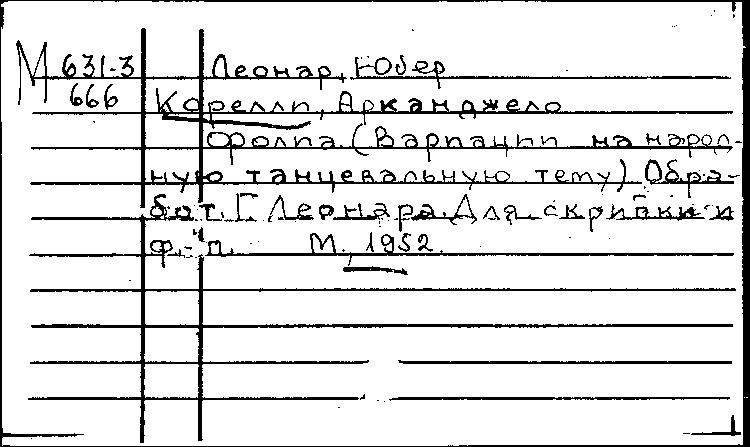 М 631-3 Леонар, Юбер
666 Корелли, Арканджело
Фолиа. (Вариации на народ-
ную танцевальную тему) Обра-
бот. Г. Леонара. Для скрипки и
ф.-п. М., 1952.